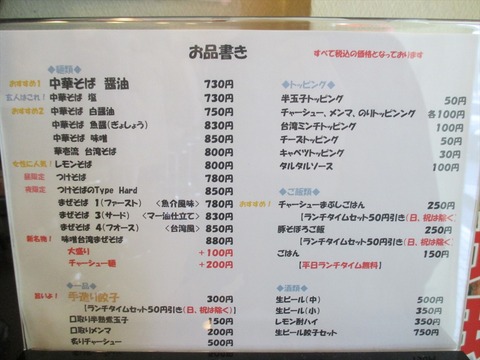 お品書き
すべて税込の価格となっております
◆麺類◆
おすすめ1 中華そば 醤油 730円
玄人はこれ! 中華そば 塩 730円
おすすめ2 中華そば 白醤油 750円
中華そば 魚醤(ぎょしょう) 830円
中華そば 味噌 800円
華壱流 台湾そば 800円
女性に人気! レモンそば 800円
昼限定 つけそば 780円
夜限定 つけそばのType Hard 850円
まぜそば 1(ファースト) <魚介風味> 780円
まぜそば 3(サード) <マー油仕立て> 830円
まぜそば 4(フォース) <台湾風> 850円
新名物! 味噌台湾まぜそば 880円
大盛り +100円
チャーシュー麺 +200円
◆一品◆
旨いよ! 手造り餃子 300円
【ランチタイムセット50円引き(日、祝は除く)】
口取り半熟煮玉子 150円
口取りメンマ 200円
炙りチャーシュー 500円
◆トッピング◆
半玉子トッピング 50円
チャーシュー、メンマ、のりトッピンング 各100円
台湾ミンチトッピング 100円
チーストッピング 50円
キャベツトッピング 30円
タルタルソース 100円
◆ご飯類◆
おすすめ! チャーシューまぶしごはん 250円
【ランチタイムセット50円引き(日、祝は除く)】
豚そぼろご飯 250円
【ランチタイムセット50円引き(日、祝は除く)】
ごはん 150円
【平日ランチタイム無料】
◆酒類◆
生ビール(中) 500円
生ビール(小) 350円
レモン酎ハイ 350円
生ビール餃子セット 750円